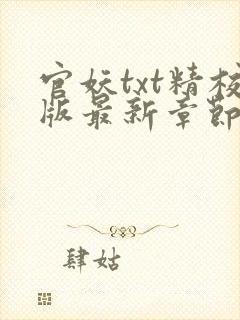 官妖txt精校
版最新章節
肆姑